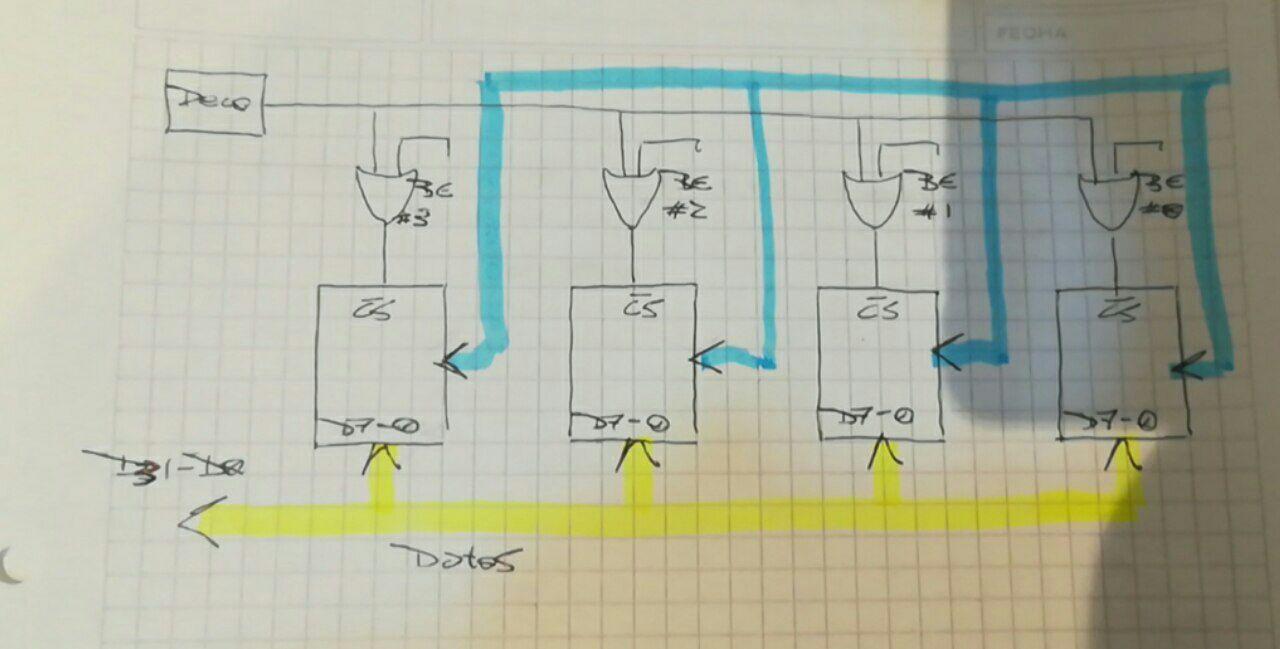 FECHA
Deco
BE
#3
BE
#2
BE
#1
BE
#0
C̅S̅
C̅S̅
C̅S̅
C̅S̅
D7-0
D7-0
D7-0
D7-0
D31-D0
Datos